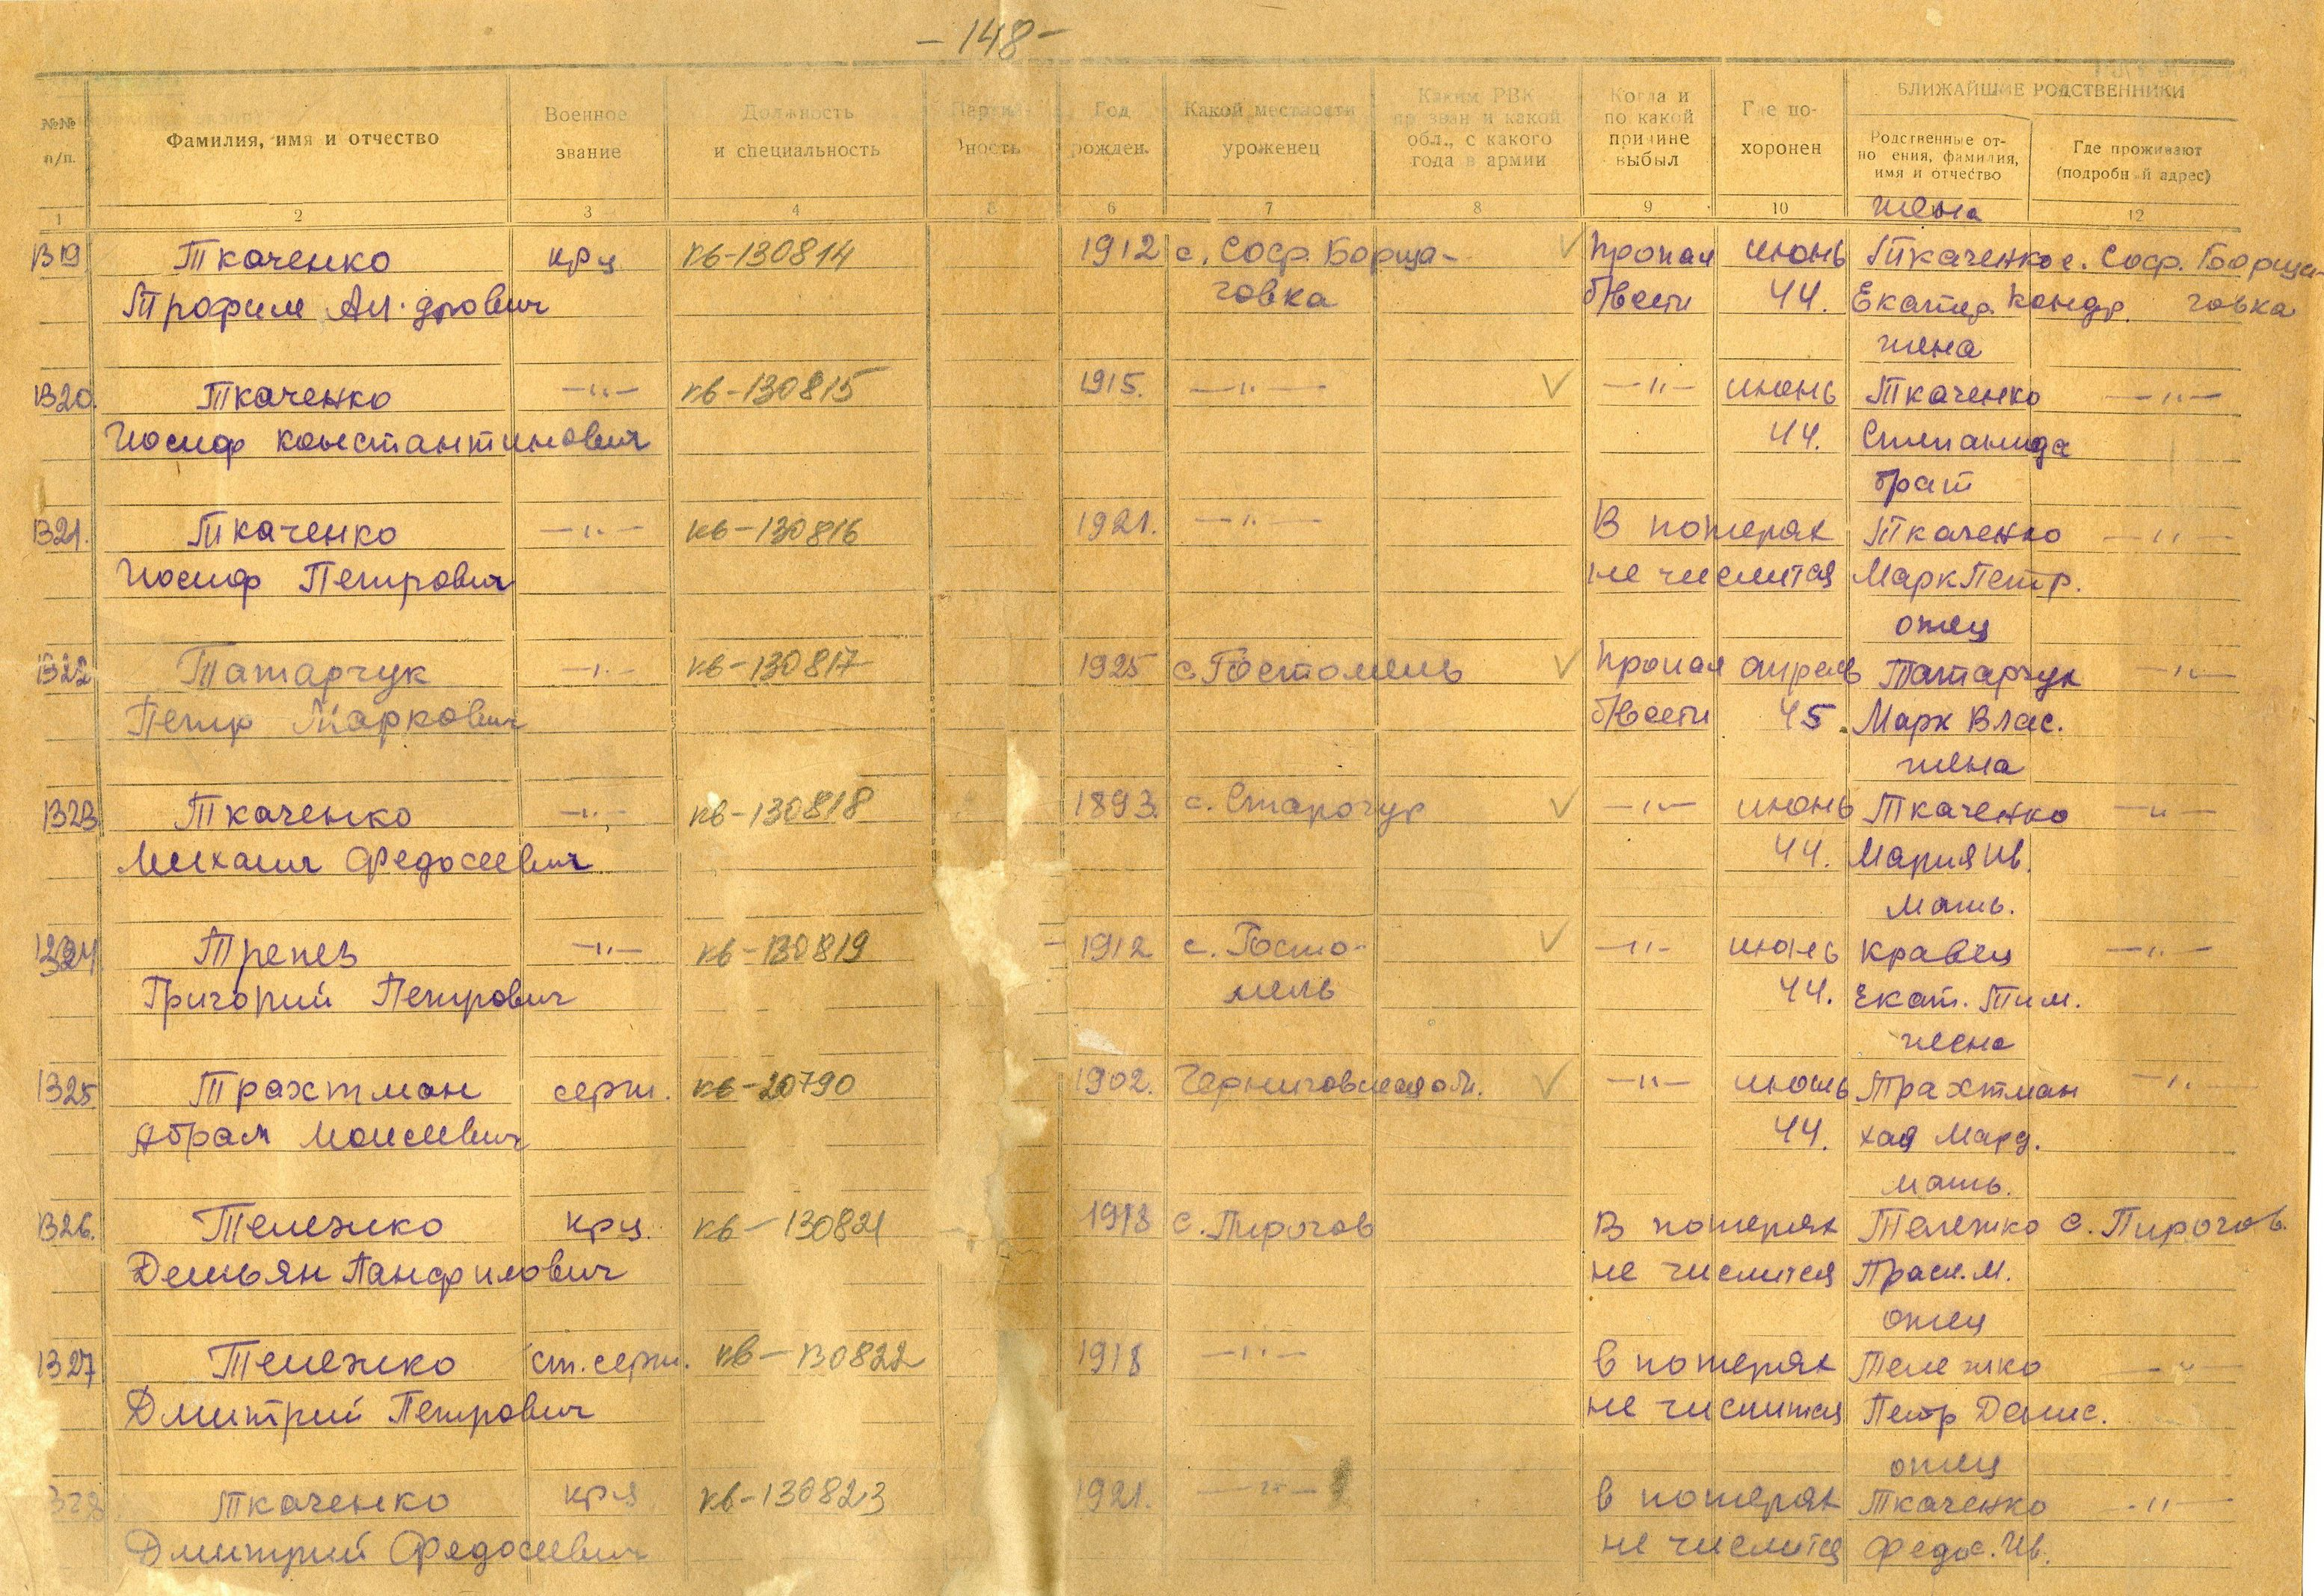 - 148 -
БЛИЖАЙШИЕ РОДСТВЕННИКИ
№№ п/п.
Фамилия, имя и отчество
Военное звание
Должность и специальность
Партийность
Год рожден.
Какой местности уроженец
Каким РВК призван и какой обл., с какого года в армии
Когда и по какой причине выбыл
Где похоронен
Родственные отношения, фамилия, имя и отчество
Где проживают (подробный адрес)
1 2 3 4 5 6 7 8 9 10 12
жена
1319 Ткаченко крц кв-130814 1912 с. Соф. Борща- Пропал июнь Ткаченко с. Соф. Борща-
Трофим Ал-дрович говка б/вести 44. Екатер. Кондр. говка
жена
1320. Ткаченко —"— кв-130815 1915. —"— —"— июнь Ткаченко —"—
Иосиф Константинович 44. Степанида
брат
1321. Ткаченко —"— кв-130816 1921. —"— В потерях Ткаченко —"—
Иосиф Петрович не числится Марк Петр.
отец
1322 Татарчук —"— кв-130817 1925 с. Гостомель Пропал апрель Татарчук —"—
Петр Маркович б/вести 45. Марк Влас.
жена
1323 Ткаченко —"— кв-130818 1893. с. —"— июнь Ткаченко —"—
Михаил Федосеевич 44. Мария Ив.
мать.
1324 Трепез —"— кв-130819 1912 с. Госто- —"— июнь Кравец —"—
Григорий Петрович мель 44. Екат. Тим.
жена
1325 Трахтман серж. кв-20790 1902. —"— июнь Трахтман —"—
Абрам Моисеевич 44. Хая Мард.
мать.
1326. Тележко крц. кв-130821 1913 с. Пирогов В потерях Тележко с. Пирогов.
Демьян Панфилович не числится Праск. М.
отец
1327 Тележко ст. серж. кв-130822 1918 —"— В потерях Тележко —"—
Дмитрий Петрович не числится Петр Денис.
отец
1328 Ткаченко крц кв-130823 1921. —"— В потерях Ткаченко —"—
Дмитрий Федосеевич не числится Федос. Ив.